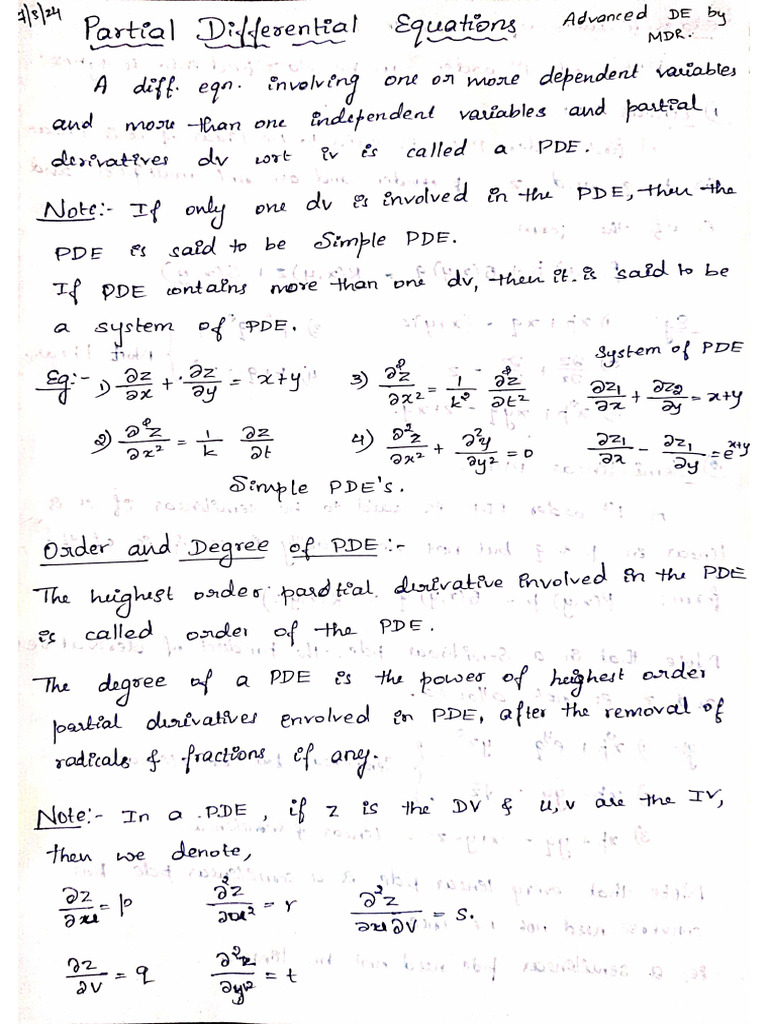 7/3/24
Partial Differential Equations
Advanced DE by
MDR.
A diff. eqn. involving one or more dependent variables
and more than one independent variables and partial
derivatives dv wrt iv is called a PDE.
Note:- If only one dv is involved in the PDE, then the
PDE is said to be Simple PDE.
If PDE contains more than one dv, then it is said to be
a system of PDE.
System of PDE
Eg:- 1) ∂z/∂x + ∂z/∂y = x+y 3) ∂²z/∂x² = 1/k² ∂²z/∂t² ∂z₁/∂x + ∂z₂/∂y = x+y
2) ∂²z/∂x² = 1/k ∂z/∂t 4) ∂²z/∂x² + ∂²y/∂y² = 0 ∂z₁/∂x - ∂z₁/∂y = e^(x+y)
Simple PDE's.
Order and Degree of PDE:-
The heighest order pardtial derivative involved in the PDE
is called order of the PDE.
The degree of a PDE is the power of heighest order
partial derivatives envolved in PDE, after the removal of
radicals & fractions if any.
Note:- In a PDE, if z is the DV & u,v are the IV,
then we denote,
∂z/∂u = p ∂²z/∂u² = r ∂²z/∂u∂v = s.
∂z/∂v = q ∂²z/∂v² = t